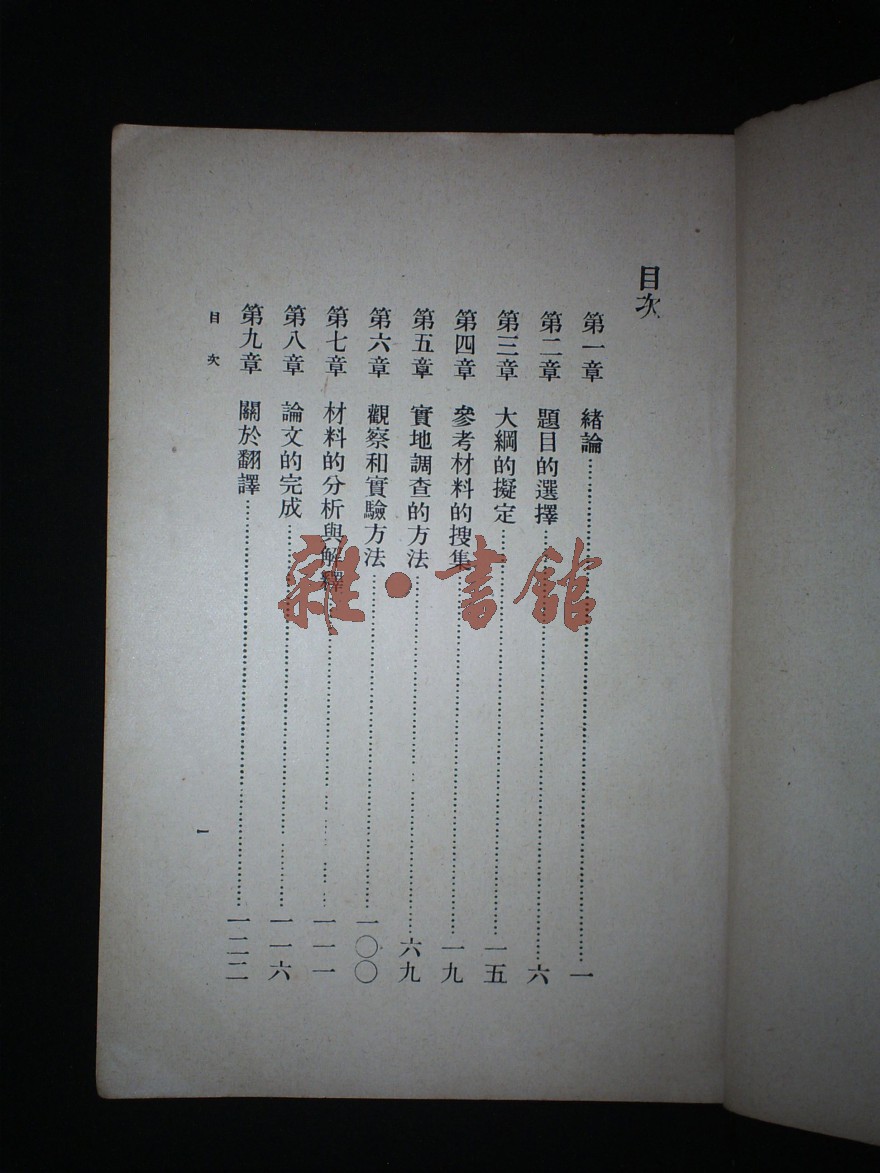 目次
第一章 緒論……一
第二章 題目的選擇……六
第三章 大綱的擬定……一五
第四章 參考材料的搜集……一九
第五章 實地調查的方法……六九
第六章 觀察和實驗方法……一〇〇
第七章 材料的分析與解釋……一一一
第八章 論文的完成……一一六
第九章 關於翻譯……一二二
目次 一
雜·書館